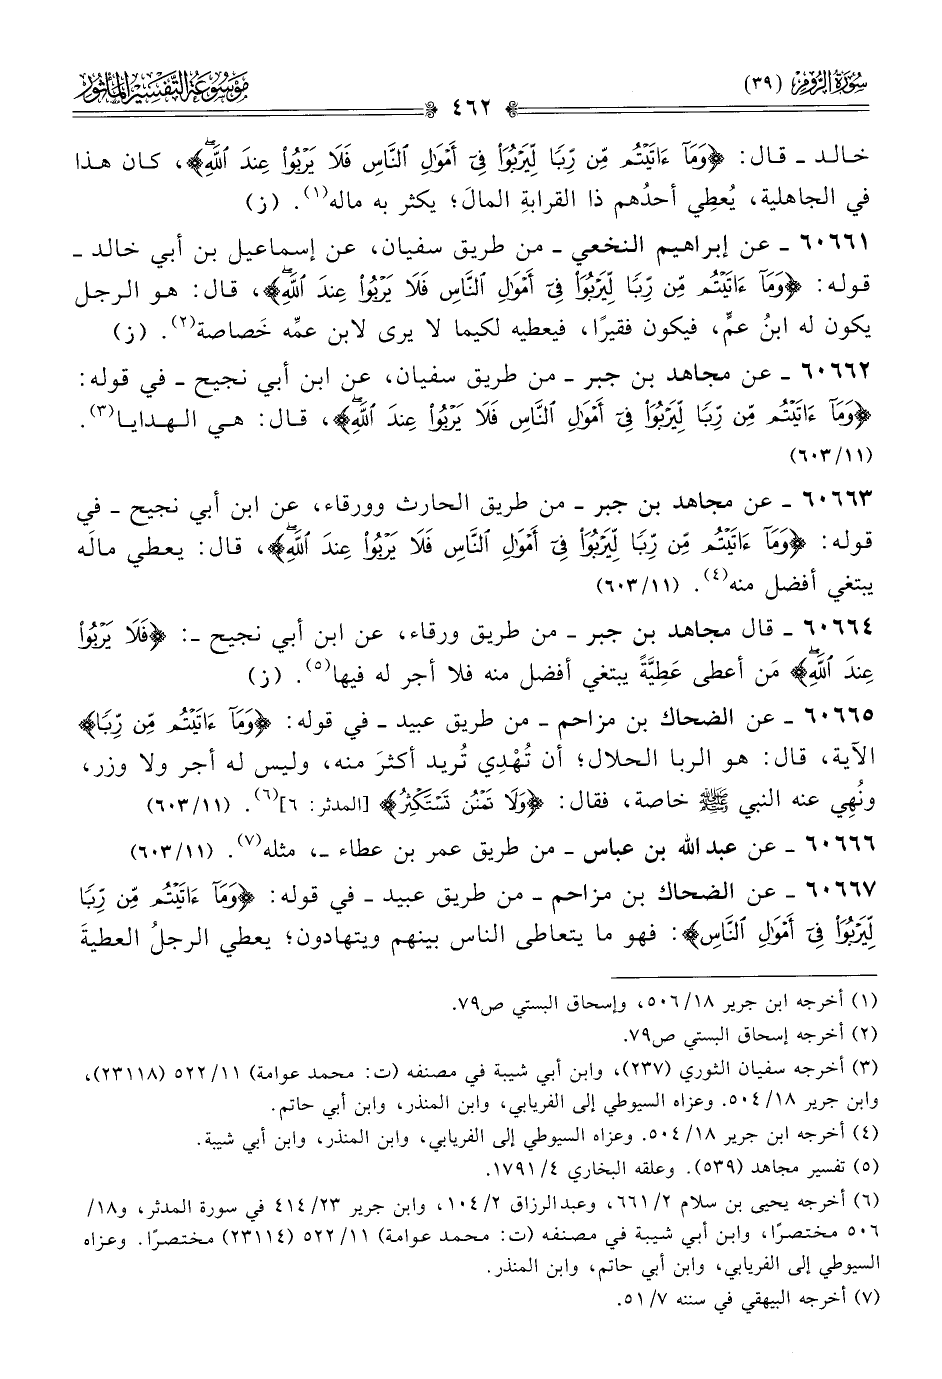 سُورَةُ الرُّومِ (٣٩)
٤٦٢
مَوْسُوعَةُ التَّفْسِيرِ المَأْثُورِ
خالد ـ قال: ﴿وَمَآ ءَاتَيْتُم مِّن رِّبًا لِّيَرْبُوَا۟ فِىٓ أَمْوَٰلِ ٱلنَّاسِ فَلَا يَرْبُوا۟ عِندَ ٱللَّهِۖ﴾، كان هذا
في الجاهلية، يُعطِي أحدُهم ذا القرابةِ المالَ؛ يكثر به ماله(١). (ز)
٦٠٦٦١ ـ عن إبراهيم النخعي ـ من طريق سفيان، عن إسماعيل بن أبي خالد ـ
قوله: ﴿وَمَآ ءَاتَيْتُم مِّن رِّبًا لِّيَرْبُوَا۟ فِىٓ أَمْوَٰلِ ٱلنَّاسِ فَلَا يَرْبُوا۟ عِندَ ٱللَّهِۖ﴾، قال: هو الرجل
يكون له ابنُ عمٍّ، فيكون فقيرًا، فيعطيه لكيما لا يرى لابن عمِّه خَصاصة(٢). (ز)
٦٠٦٦٢ ـ عن مجاهد بن جبر ـ من طريق سفيان، عن ابن أبي نجيح ـ في قوله:
﴿وَمَآ ءَاتَيْتُم مِّن رِّبًا لِّيَرْبُوَا۟ فِىٓ أَمْوَٰلِ ٱلنَّاسِ فَلَا يَرْبُوا۟ عِندَ ٱللَّهِۖ﴾، قال: هي الهدايا(٣).
(١١/ ٦٠٣)
٦٠٦٦٣ ـ عن مجاهد بن جبر ـ من طريق الحارث وورقاء، عن ابن أبي نجيح ـ في
قوله: ﴿وَمَآ ءَاتَيْتُم مِّن رِّبًا لِّيَرْبُوَا۟ فِىٓ أَمْوَٰلِ ٱلنَّاسِ فَلَا يَرْبُوا۟ عِندَ ٱللَّهِۖ﴾، قال: يعطي مالَه
يبتغي أفضل منه(٤). (١١/ ٦٠٣)
٦٠٦٦٤ ـ قال مجاهد بن جبر ـ من طريق ورقاء، عن ابن أبي نجيح ـ: ﴿فَلَا يَرْبُوا۟
عِندَ ٱللَّهِۖ﴾ مَن أعطى عَطِيَّةً يبتغي أفضل منه فلا أجر له فيها(٥). (ز)
٦٠٦٦٥ ـ عن الضحاك بن مزاحم ـ من طريق عبيد ـ في قوله: ﴿وَمَآ ءَاتَيْتُم مِّن رِّبًا﴾
الآية، قال: هو الربا الحلال؛ أن تُهْدِي تُريد أكثرَ منه، وليس له أجر ولا وزر،
ونُهِي عنه النبي ﷺ خاصة، فقال: ﴿وَلَا تَمْنُن تَسْتَكْثِرُ﴾ [المدثر: ٦](٦). (١١/ ٦٠٣)
٦٠٦٦٦ ـ عن عبدالله بن عباس ـ من طريق عمر بن عطاء ـ، مثله(٧). (١١/ ٦٠٣)
٦٠٦٦٧ ـ عن الضحاك بن مزاحم ـ من طريق عبيد ـ في قوله: ﴿وَمَآ ءَاتَيْتُم مِّن رِّبًا
لِّيَرْبُوَا۟ فِىٓ أَمْوَٰلِ ٱلنَّاسِ﴾: فهو ما يتعاطى الناس بينهم ويتهادون؛ يعطي الرجلُ العطيةَ
(١) أخرجه ابن جرير ١٨/ ٥٠٦، وإسحاق البستي ص٧٩.
(٢) أخرجه إسحاق البستي ص٧٩.
(٣) أخرجه سفيان الثوري (٢٣٧)، وابن أبي شيبة في مصنفه (ت: محمد عوامة) ١١/ ٥٢٢ (٢٣١١٨)،
وابن جرير ١٨/ ٥٠٤. وعزاه السيوطي إلى الفريابي، وابن المنذر، وابن أبي حاتم.
(٤) أخرجه ابن جرير ١٨/ ٥٠٤. وعزاه السيوطي إلى الفريابي، وابن المنذر، وابن أبي شيبة.
(٥) تفسير مجاهد (٥٣٩). وعلقه البخاري ٤/ ١٧٩١.
(٦) أخرجه يحيى بن سلام ٢/ ٦٦١، وعبدالرزاق ٢/ ١٠٤، وابن جرير ٢٣/ ٤١٤ في سورة المدثر، و١٨/
٥٠٦ مختصرًا، وابن أبي شيبة في مصنفه (ت: محمد عوامة) ١١/ ٥٢٢ (٢٣١١٤) مختصرًا. وعزاه
السيوطي إلى الفريابي، وابن أبي حاتم، وابن المنذر.
(٧) أخرجه البيهقي في سننه ٧/ ٥١.